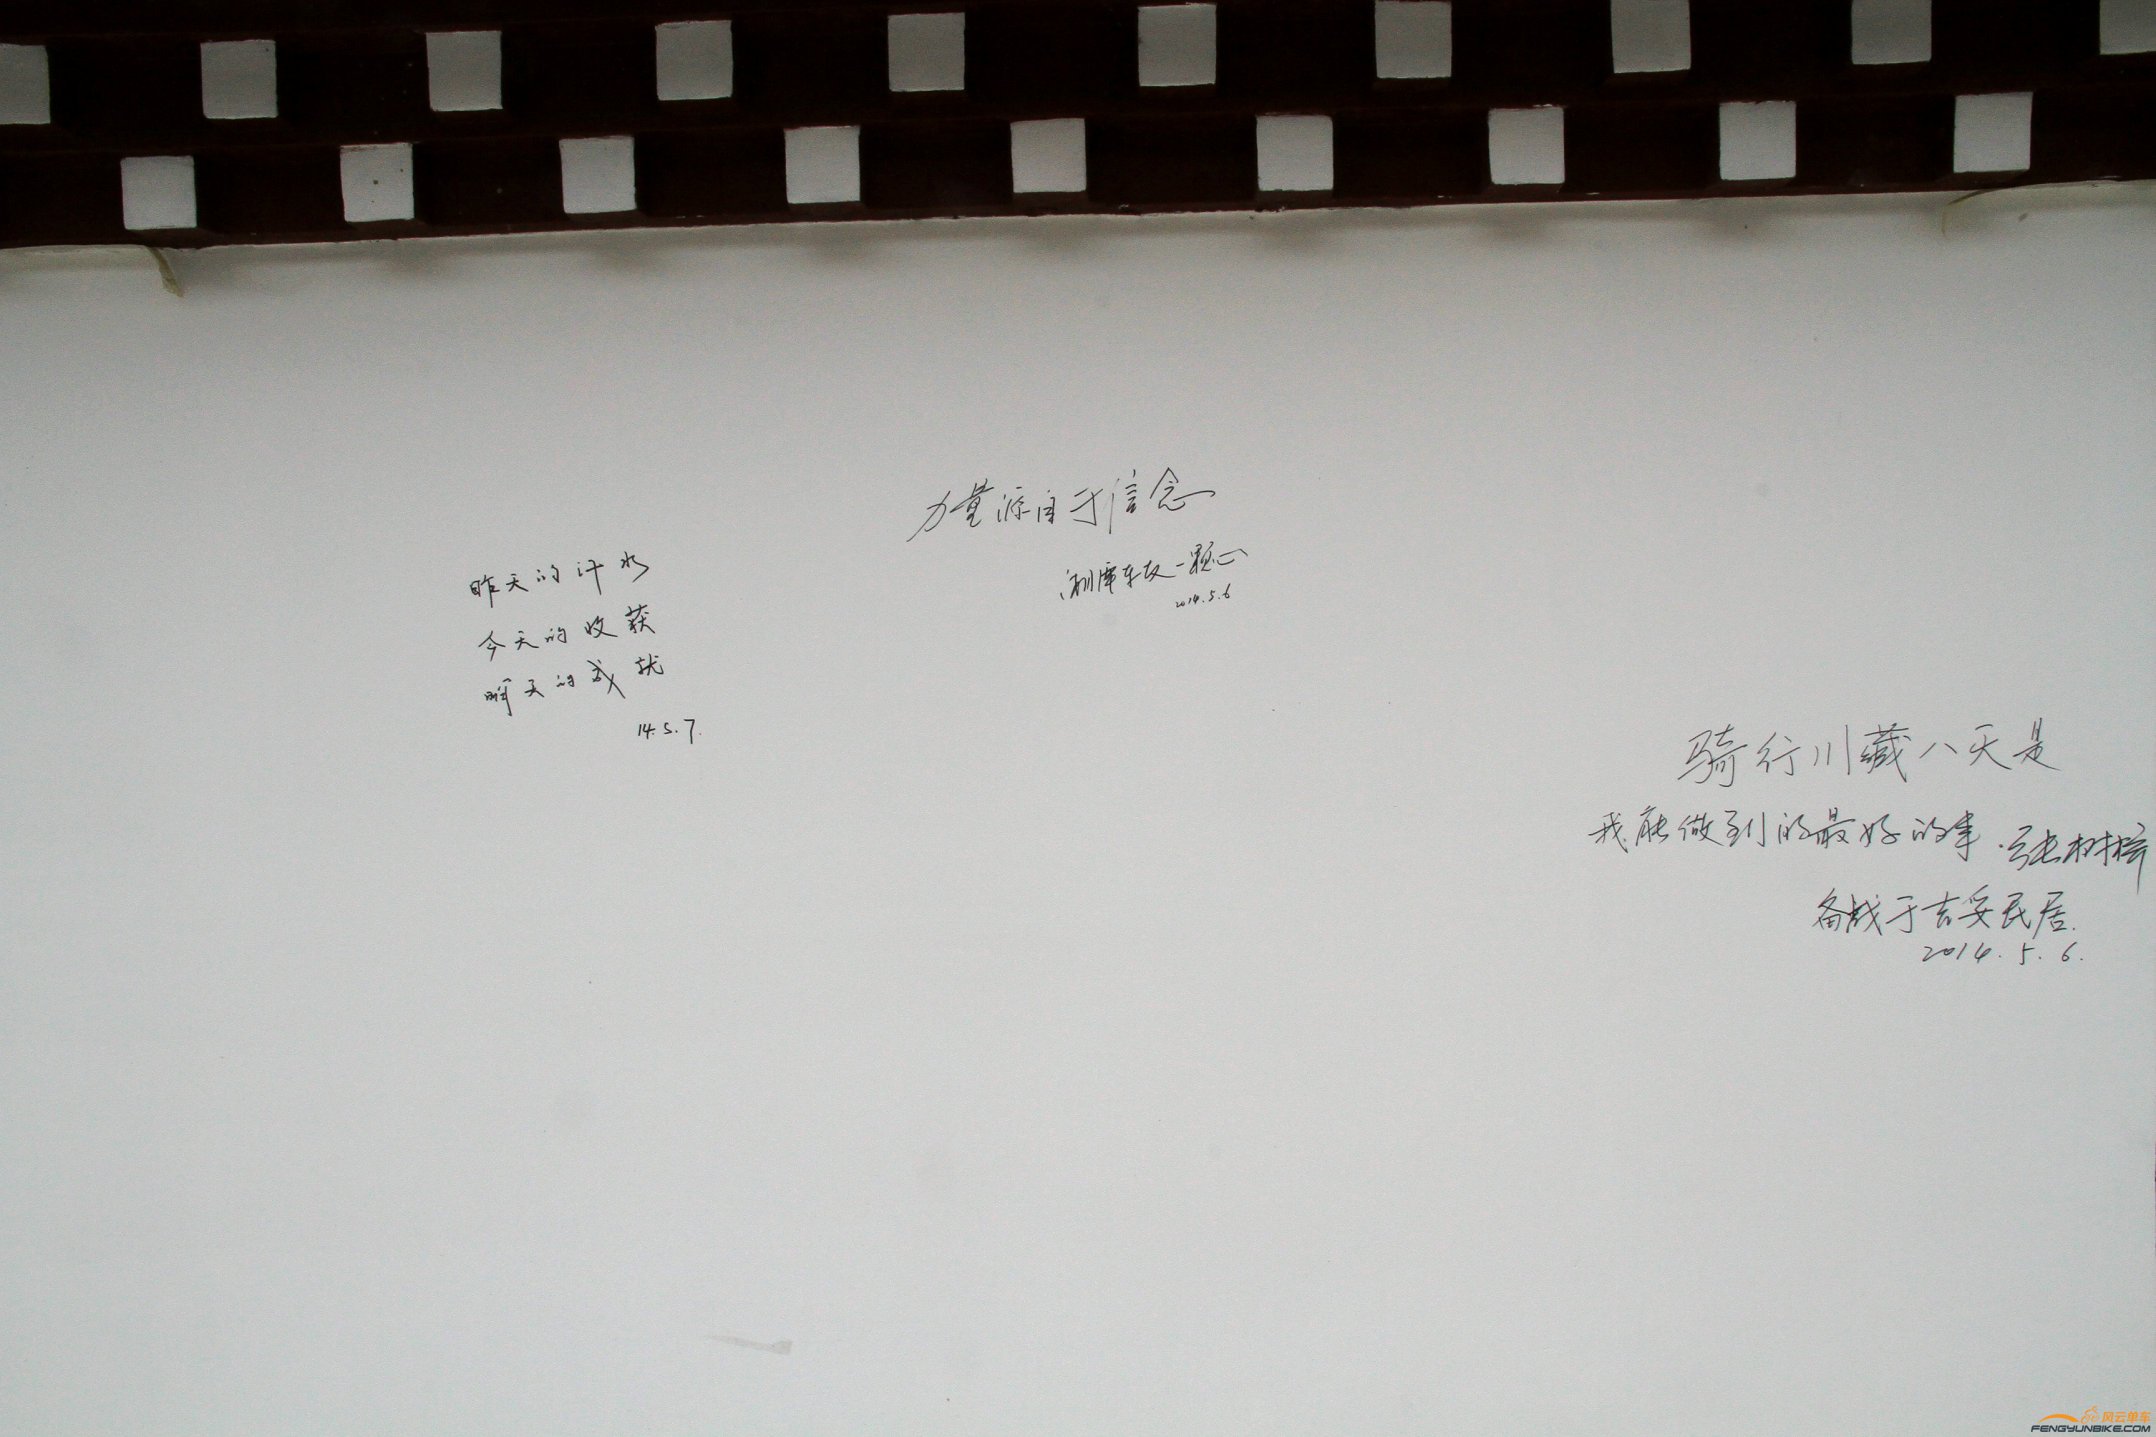 昨天的汗水
今天的收获
明天的成就
14.5.7.
力量源自于信念
车友一颗心
2014.5.6
骑行川藏八天是
我能做到的最好的事.张树
备战于吉妥民居.
2014.5.6.
风云单车
FENGYUNBIKE.COM